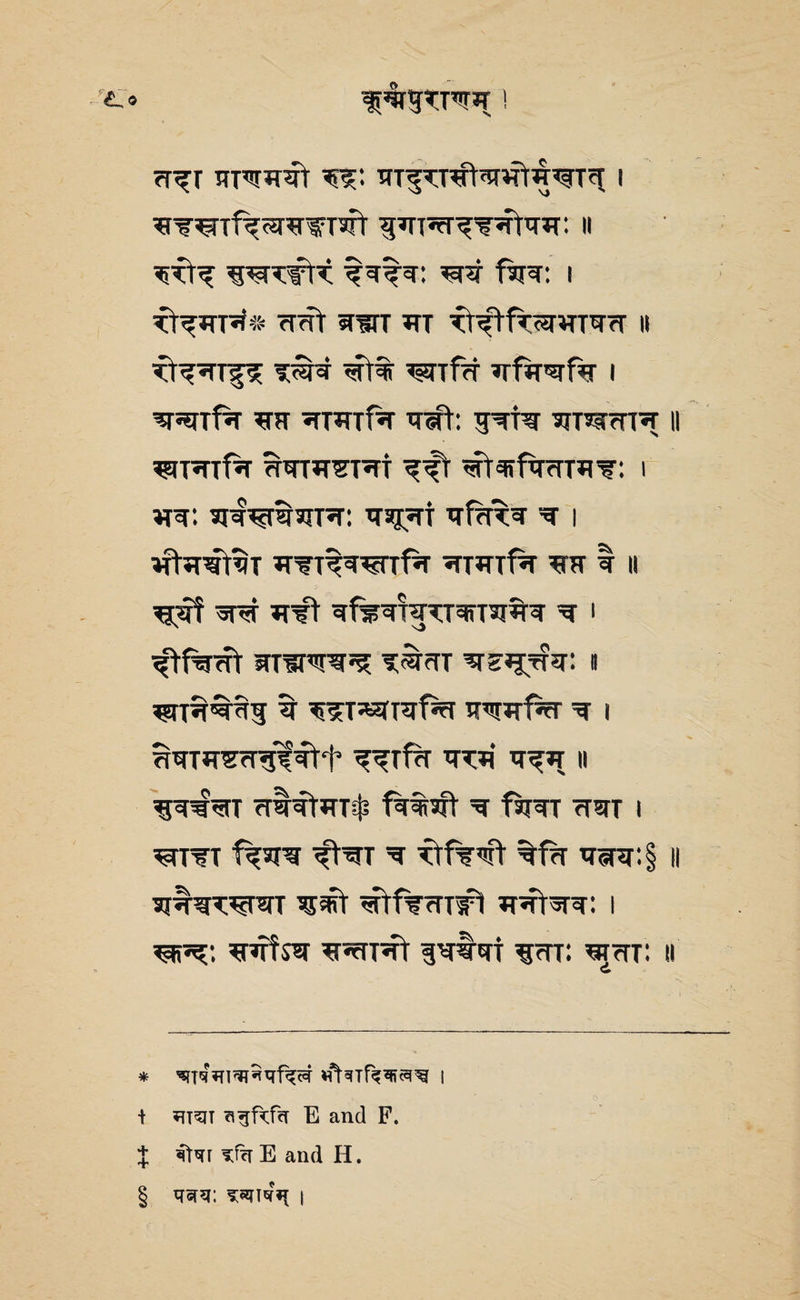 ९० कूर्म्मपुराणम् ।
तदा प्राणमयो रुद्रः प्रादुरासीत्प्रभोर्मुखात् ।
सहस्रादित्यसङ्काशो युगान्तदहनोपमः ॥
रुरोद सुस्वरं घोरं देवदेवः स्वयं शिवः ।
रोदमानं* ततो ब्रह्मा मा रोदीरित्यभाषत ॥
रोदनाद्रुद्र इत्येवं लोके ख्यातिं गमिष्यसि ।
अन्यानि सप्त नामानि पत्नीः पुत्रांश्च शाश्वतान् ॥
स्थानानि तेषामष्टानां ददौ लोकपितामहः ।
भवः शर्व्वस्तथेशानः पशूनां पतिरेव च ।
भीमश्चोग्रो महादेवस्तानि नामानि सप्त वै ॥
सूर्य्यो जलं मही वह्निर्वायुराकाशमेव च ।
दीक्षितो ब्राह्मणश्चन्द्र इत्येता अष्टमूर्त्तयः ॥
स्थानेष्वेतेषु ये रुद्रान्ध्यायन्ति प्रणमन्ति च ।
तेषामष्टतनुर्देवो† ददाति परमं पदम् ॥
सुवर्च्चला तथैवोमा‡ विकेशी च शिवा तथा ।
स्वाहा दिशश्च दीक्षा च रोहिणी चेति पत्नयः§ ॥
शनैश्चरस्तथा शुक्रो लोहिताङ्गो मनोजवः ।
स्कन्दः सर्गोऽथ सन्तानो बुधश्चैषां सुताः स्मृताः ॥
* भौवादिकत्वञ्च ।
† E and F.
‡ इति E and H.
§ पत्नयः इत्यार्षम् ।